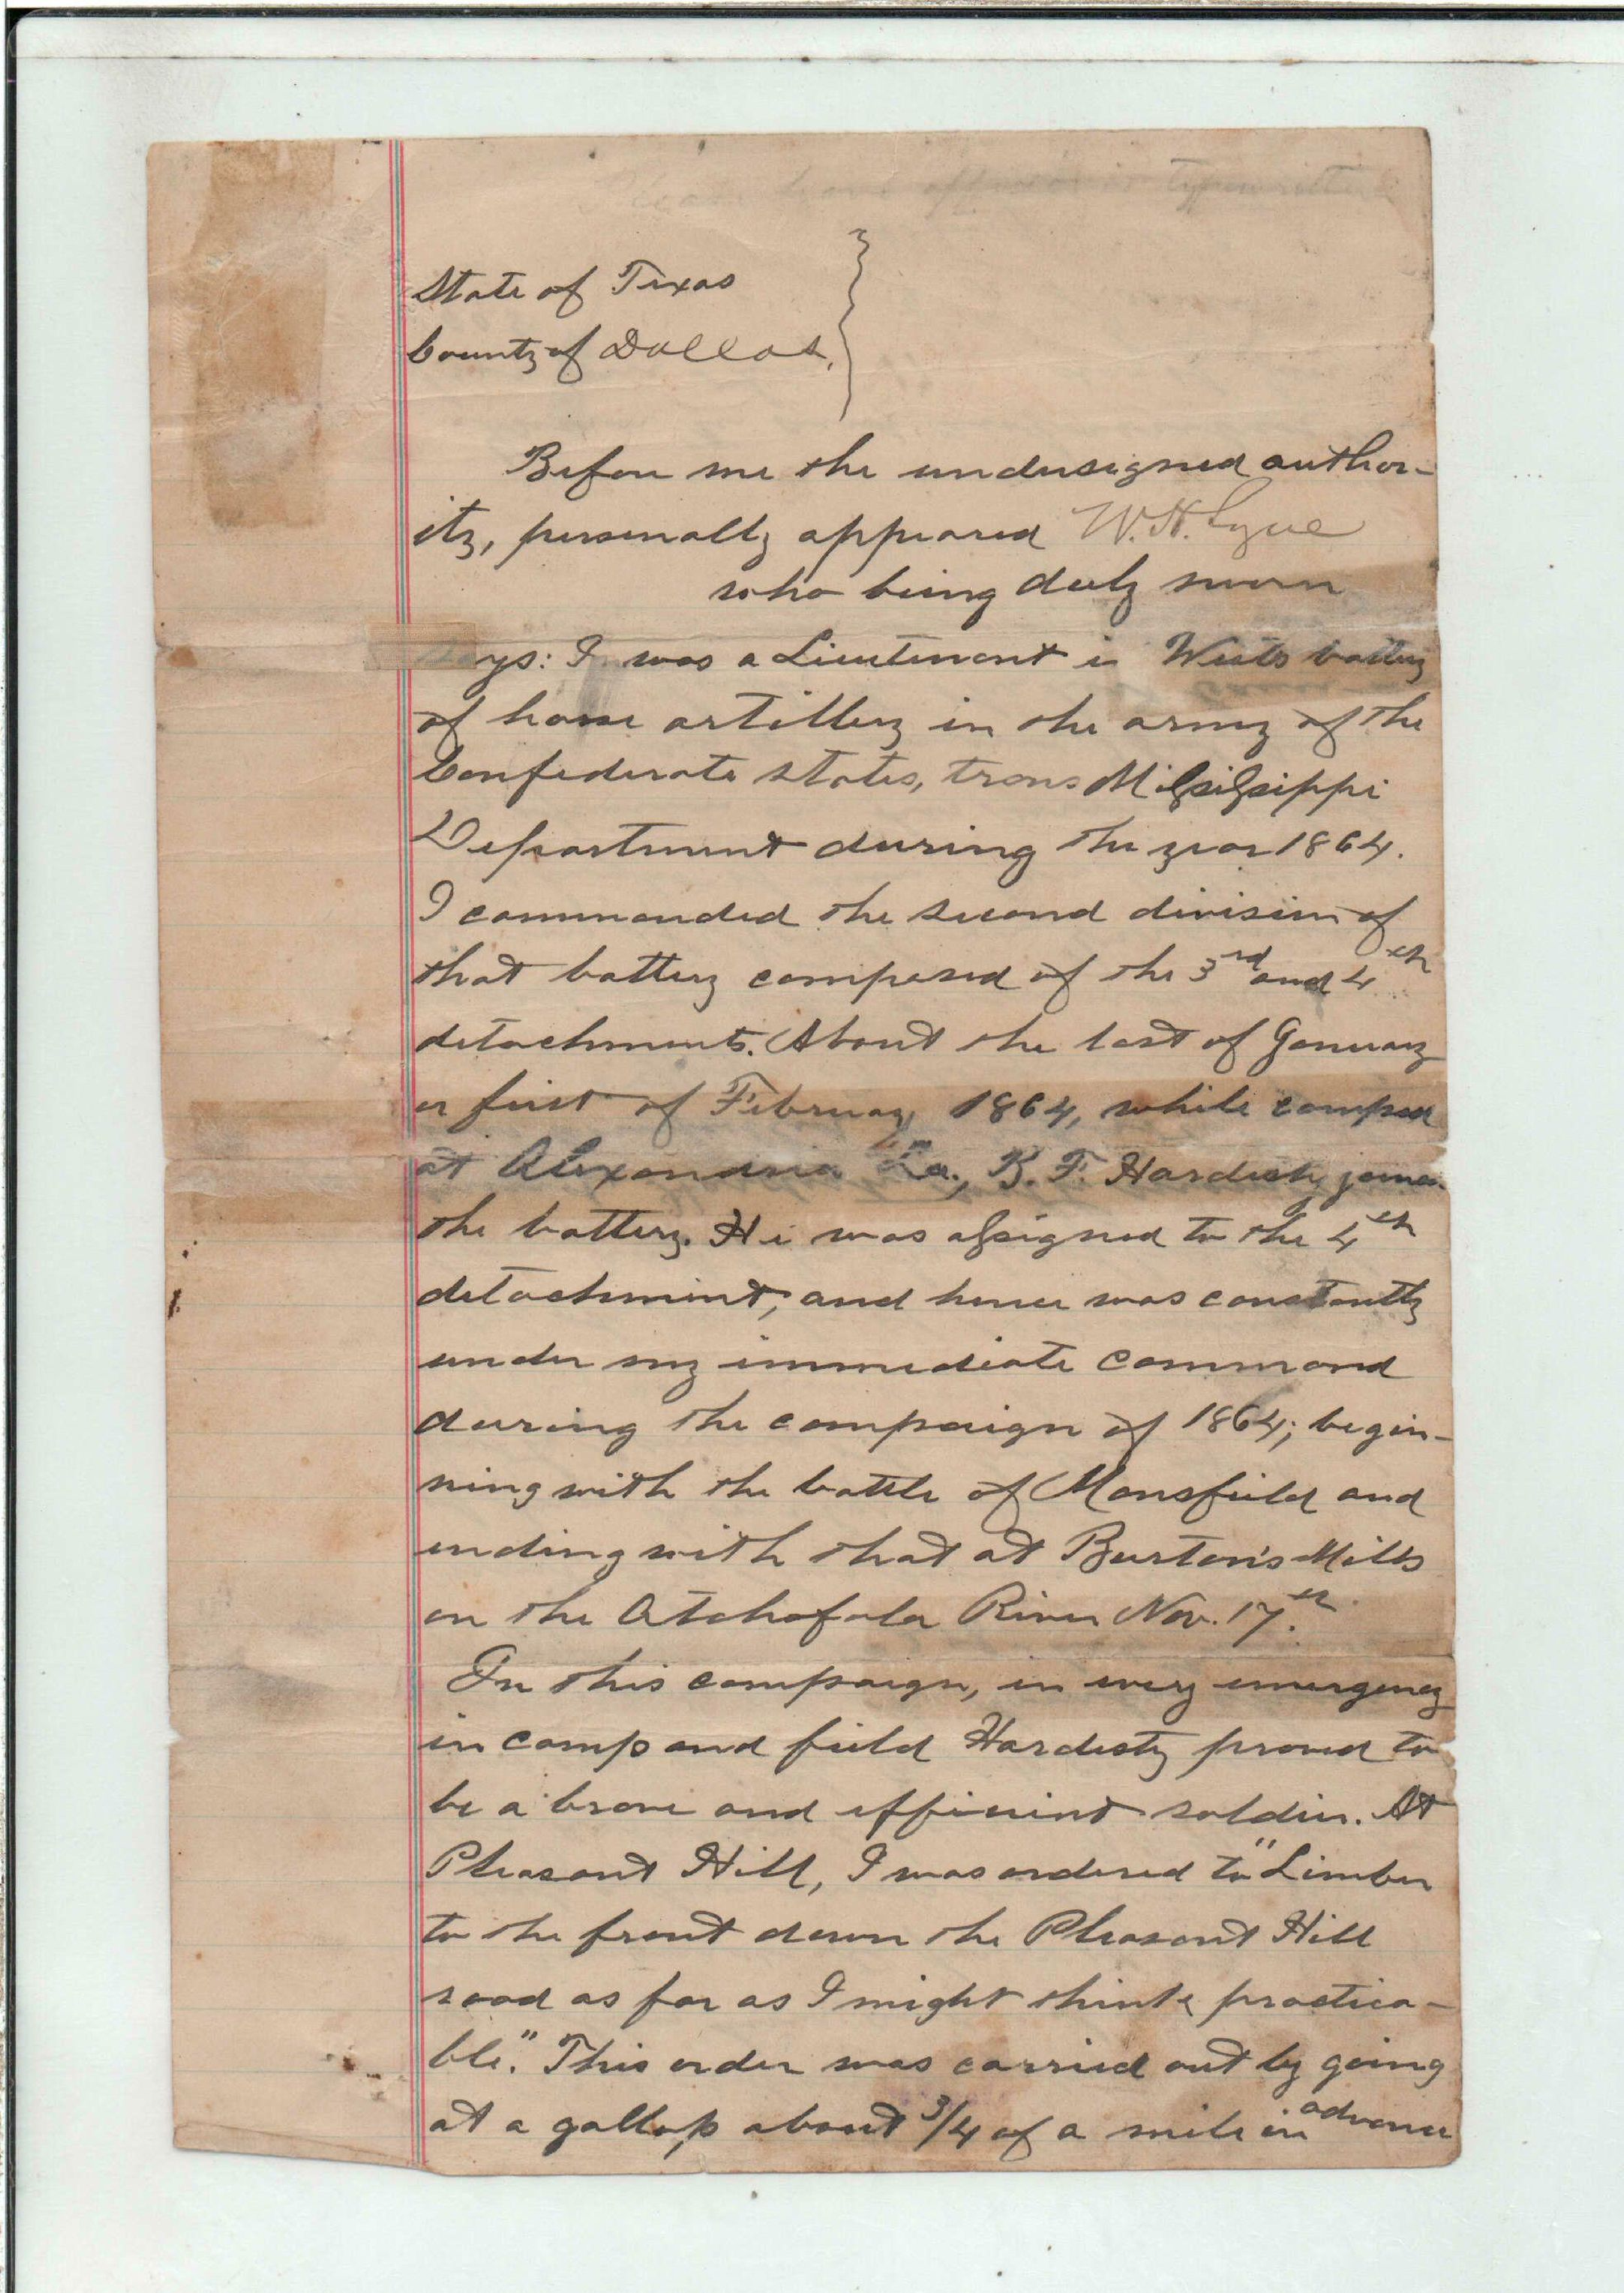 have typewritten
State of Texas
County of Dallas.
Before me the undersigned author-
ity, personally appeared W. H. Lyne
who being duly sworn
ys: I was a Lieutenant in West's battery
of horse artillery in the army of the
Confederate States, trans Mississippi
Department during the year 1864.
I commanded the second division of
that battery composed of the 3rd and 4th
detachments. About the last of January
or first of February, 1864, while camped
at Alexandria La., B. F. Hardesty joined
the battery. He was assigned to the 4th
detachment, and hence was constantly
under my immediate command
during the campaign of 1864; begin-
ning with the battle of Mansfield and
ending with that at Burton's Mills
on the Atchafala River Nov. 17th.
In this campaign, in every emergency
in camp and field Hardesty proved to
be a brave and efficient soldier. At
Pleasant Hill, I was ordered to "Limber
to the front down the Pleasant Hill
road as far as I might think practica-
ble." This order was carried out by going
at a gallop about 3/4 of a mile in advance